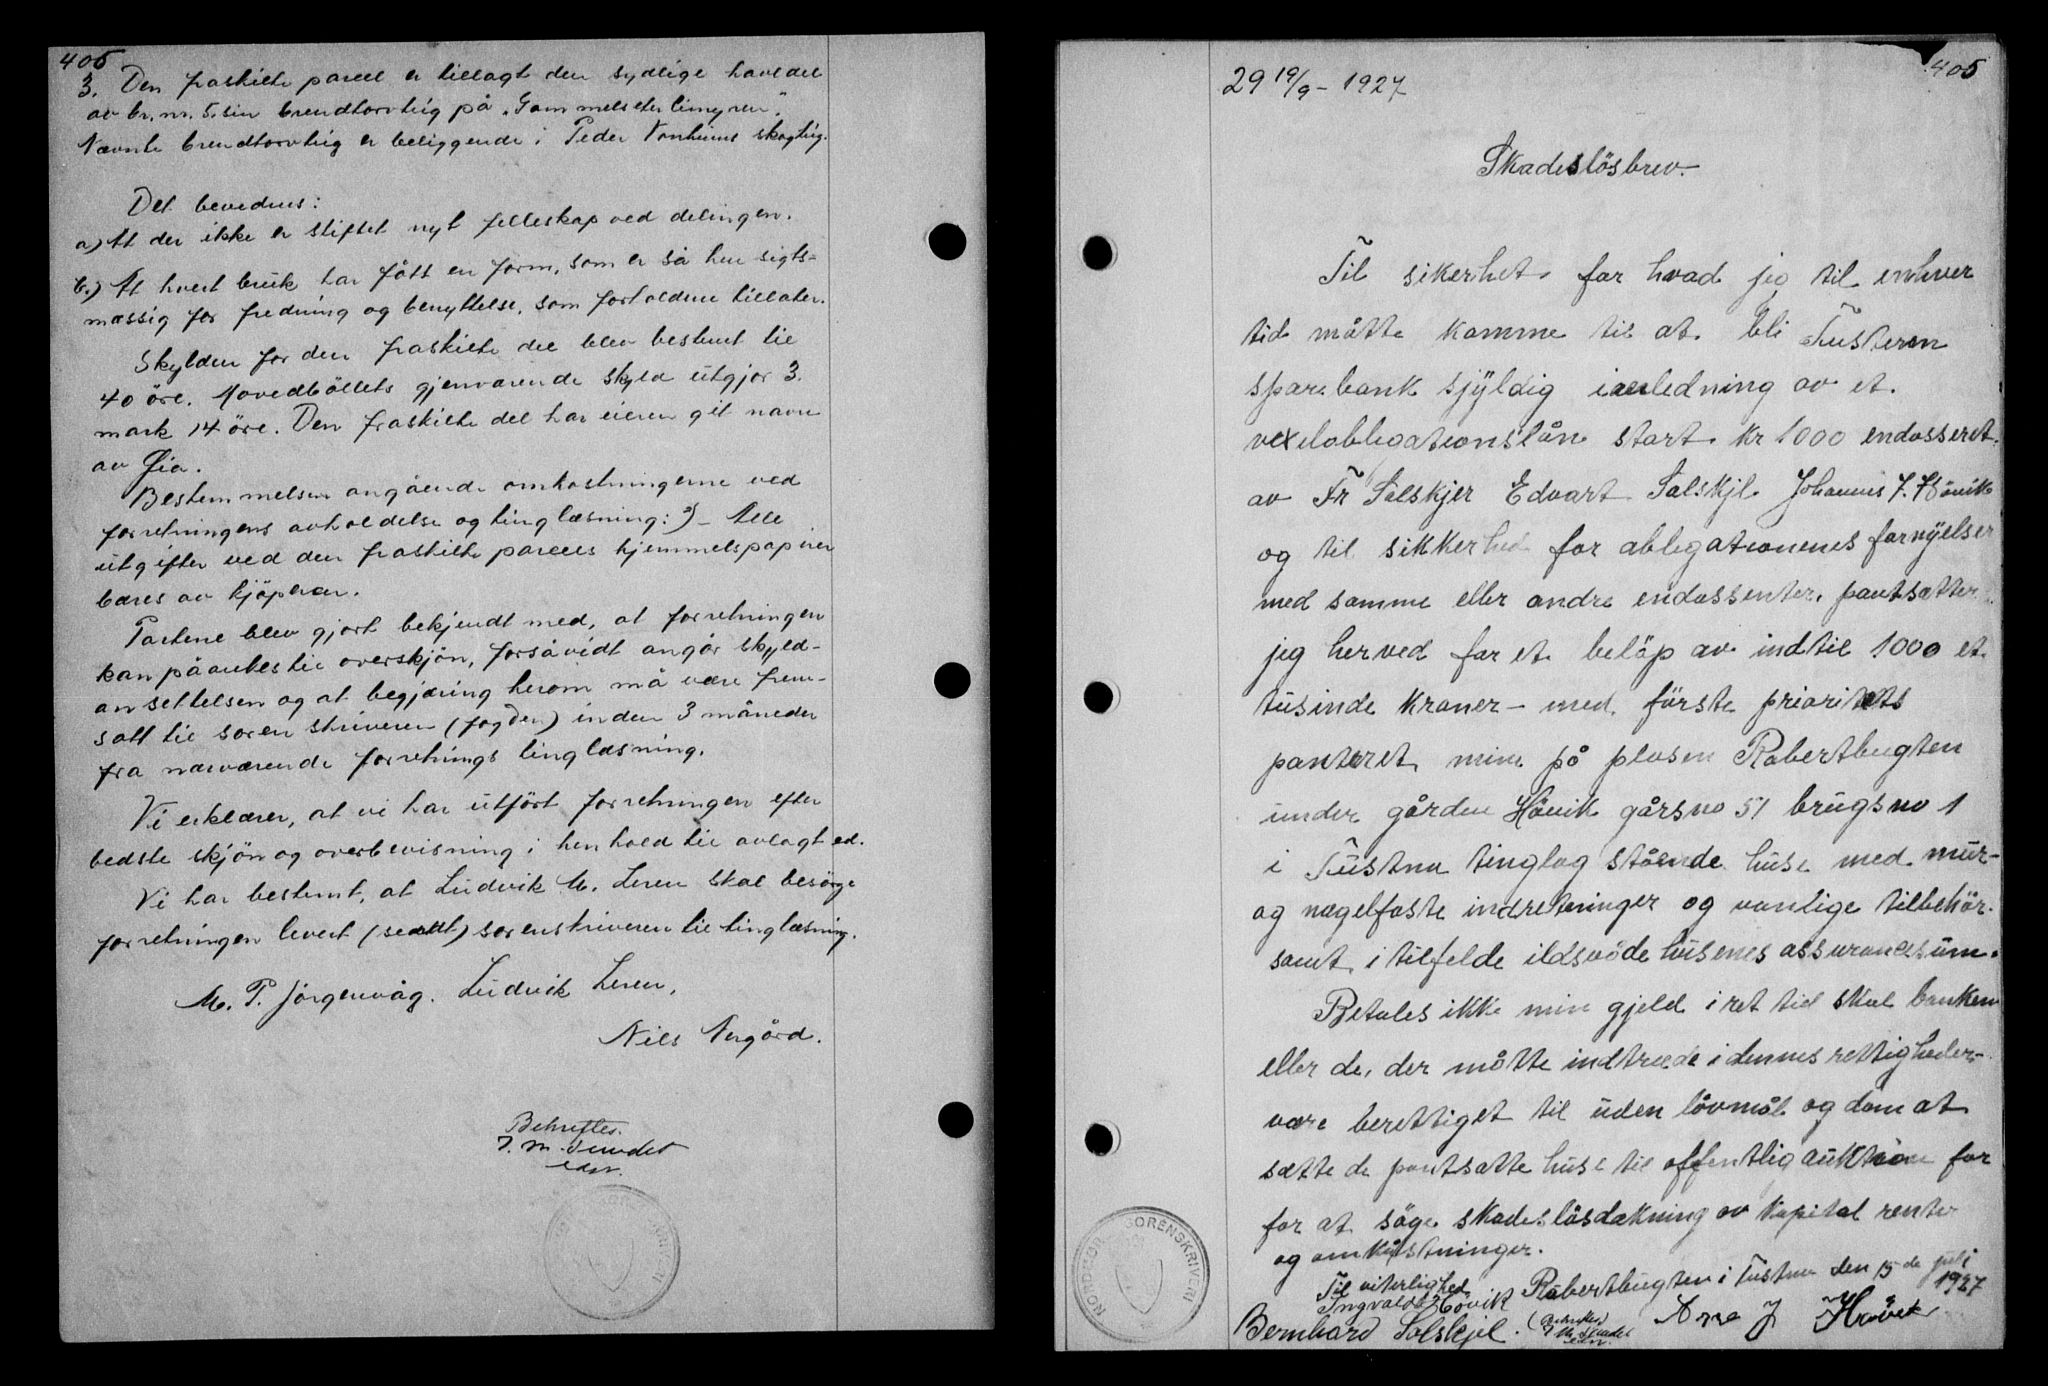 405
3. Den fraskilte parcel er tillagt den sydlige havldel
av br. nr. 5. sin brendtorvteig på "Gammelseterlimyren".
Nævnte brendtorvteig er beliggende i Peder Vonheims skogteig.
Det bevednes:
a) At der ikke er stiftet nyt felleskap ved delingen.
b.) At hvert bruk har fått en form, som er så hensigts-
mæssig for fredning og benyttelse, som forholdene tillater.
Skylden for den fraskilte del blev bestemt til
40 öre. Hovedböllets gjenværende skyld utgjör 3.
mark 14 öre. Den fraskilte del har eieren git navn
av Lia.
Bestemmelsen angående omkostningerne ved
forretningens avholdelse og tinglæsning: - Alle
utgifter ved den fraskilte parcels hjemmelspapirer
bæres av kjöperen.
Partene blev gjort bekjendt med, at forretningen
kan påankes til overskjön, forsåvidt angår skyld-
ansettelsen og at begjæring herom må være frem-
satt til sorenskriveren (fogden) inden 3 måneder
fra nærværende forretnings tinglæsning.
Vi erklærer, at vi har utfört forretningen efter
bedste skjön og overbevisning i henhold til avlagt ed.
Vi har bestemt, at Ludvik M. Leren skal besörge
forretningen levert (sendt) sorenskriveren til tinglæsning.
M. P. Jörgenvåg. Ludvik Leren,
Nils Nergård.
Bekræftes.
J. M. Sundet
edsv.
405
29 19/9 - 1927
Skadeslösbrev.
Til sikerhet for hvad jeg til enhver
tid måtte komme til at bli Tusteren
sparebank sjyldig i anledning av et
vexelobligationslån stort kr 1000 endosseret
av Fr Solskjer Edvart Solskjl Johannes J. Hövik
og til sikkerhed for obligationenes fornyelser
med samme eller andre endossenter, pantsætter
jeg herved for et belöp av indtil 1000 et
tusinde kroner - med förste prioritets
panteret mine på plasen Robertbugten
under gården Hövik gårsno 51 brugsno 1
i Tustna tinglag stående huse med mur-
og nagelfaste indretninger og vanlige tilbehör
samt i tilfelde ildsvöde husenes assurancesum.
Betales ikke min gjeld i ret tid skal banken
eller de, der måtte indtræde i dennes rettigheder-
være berettiget til uden lövmål og dom at
sætte de pantsatte huse til offentlig auktion for
for at söge skadeslösdækning av kapital renter
og omkostninger.
Robertbugten i Tustna den 15 de juli
1927
Til viterlighed
Ingvald Hövik
Bernhard Solskjel.
(Bekræftes)
J M Sundet
edsv.
Arne J Hövik
NORDMØR SORENSKRIVERI